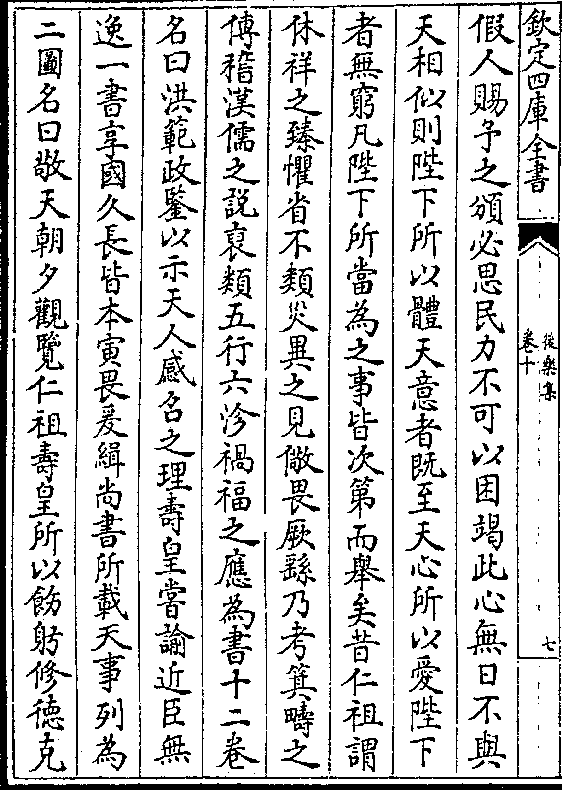 欽定四庫全書
後樂集
卷十
七
假人賜予之頒必思民力不可以困竭此心無日不與
天相似則陛下所以體天意者既至天心所以愛陛下
者無窮凡陛下所當為之事皆次第而舉矣昔仁祖謂
休祥之臻懼省不類災異之見儆畏厥繇乃考箕疇之
傳稽漢儒之說裒類五行六沴禍福之應為書十二卷
名曰洪範政鑒以示天人感名之理壽皇嘗諭近臣無
逸一書享國久長皆本寅畏爰緝尚書所載天事列為
二圖名曰敬天朝夕觀覽仁祖壽皇所以飭躬修徳克